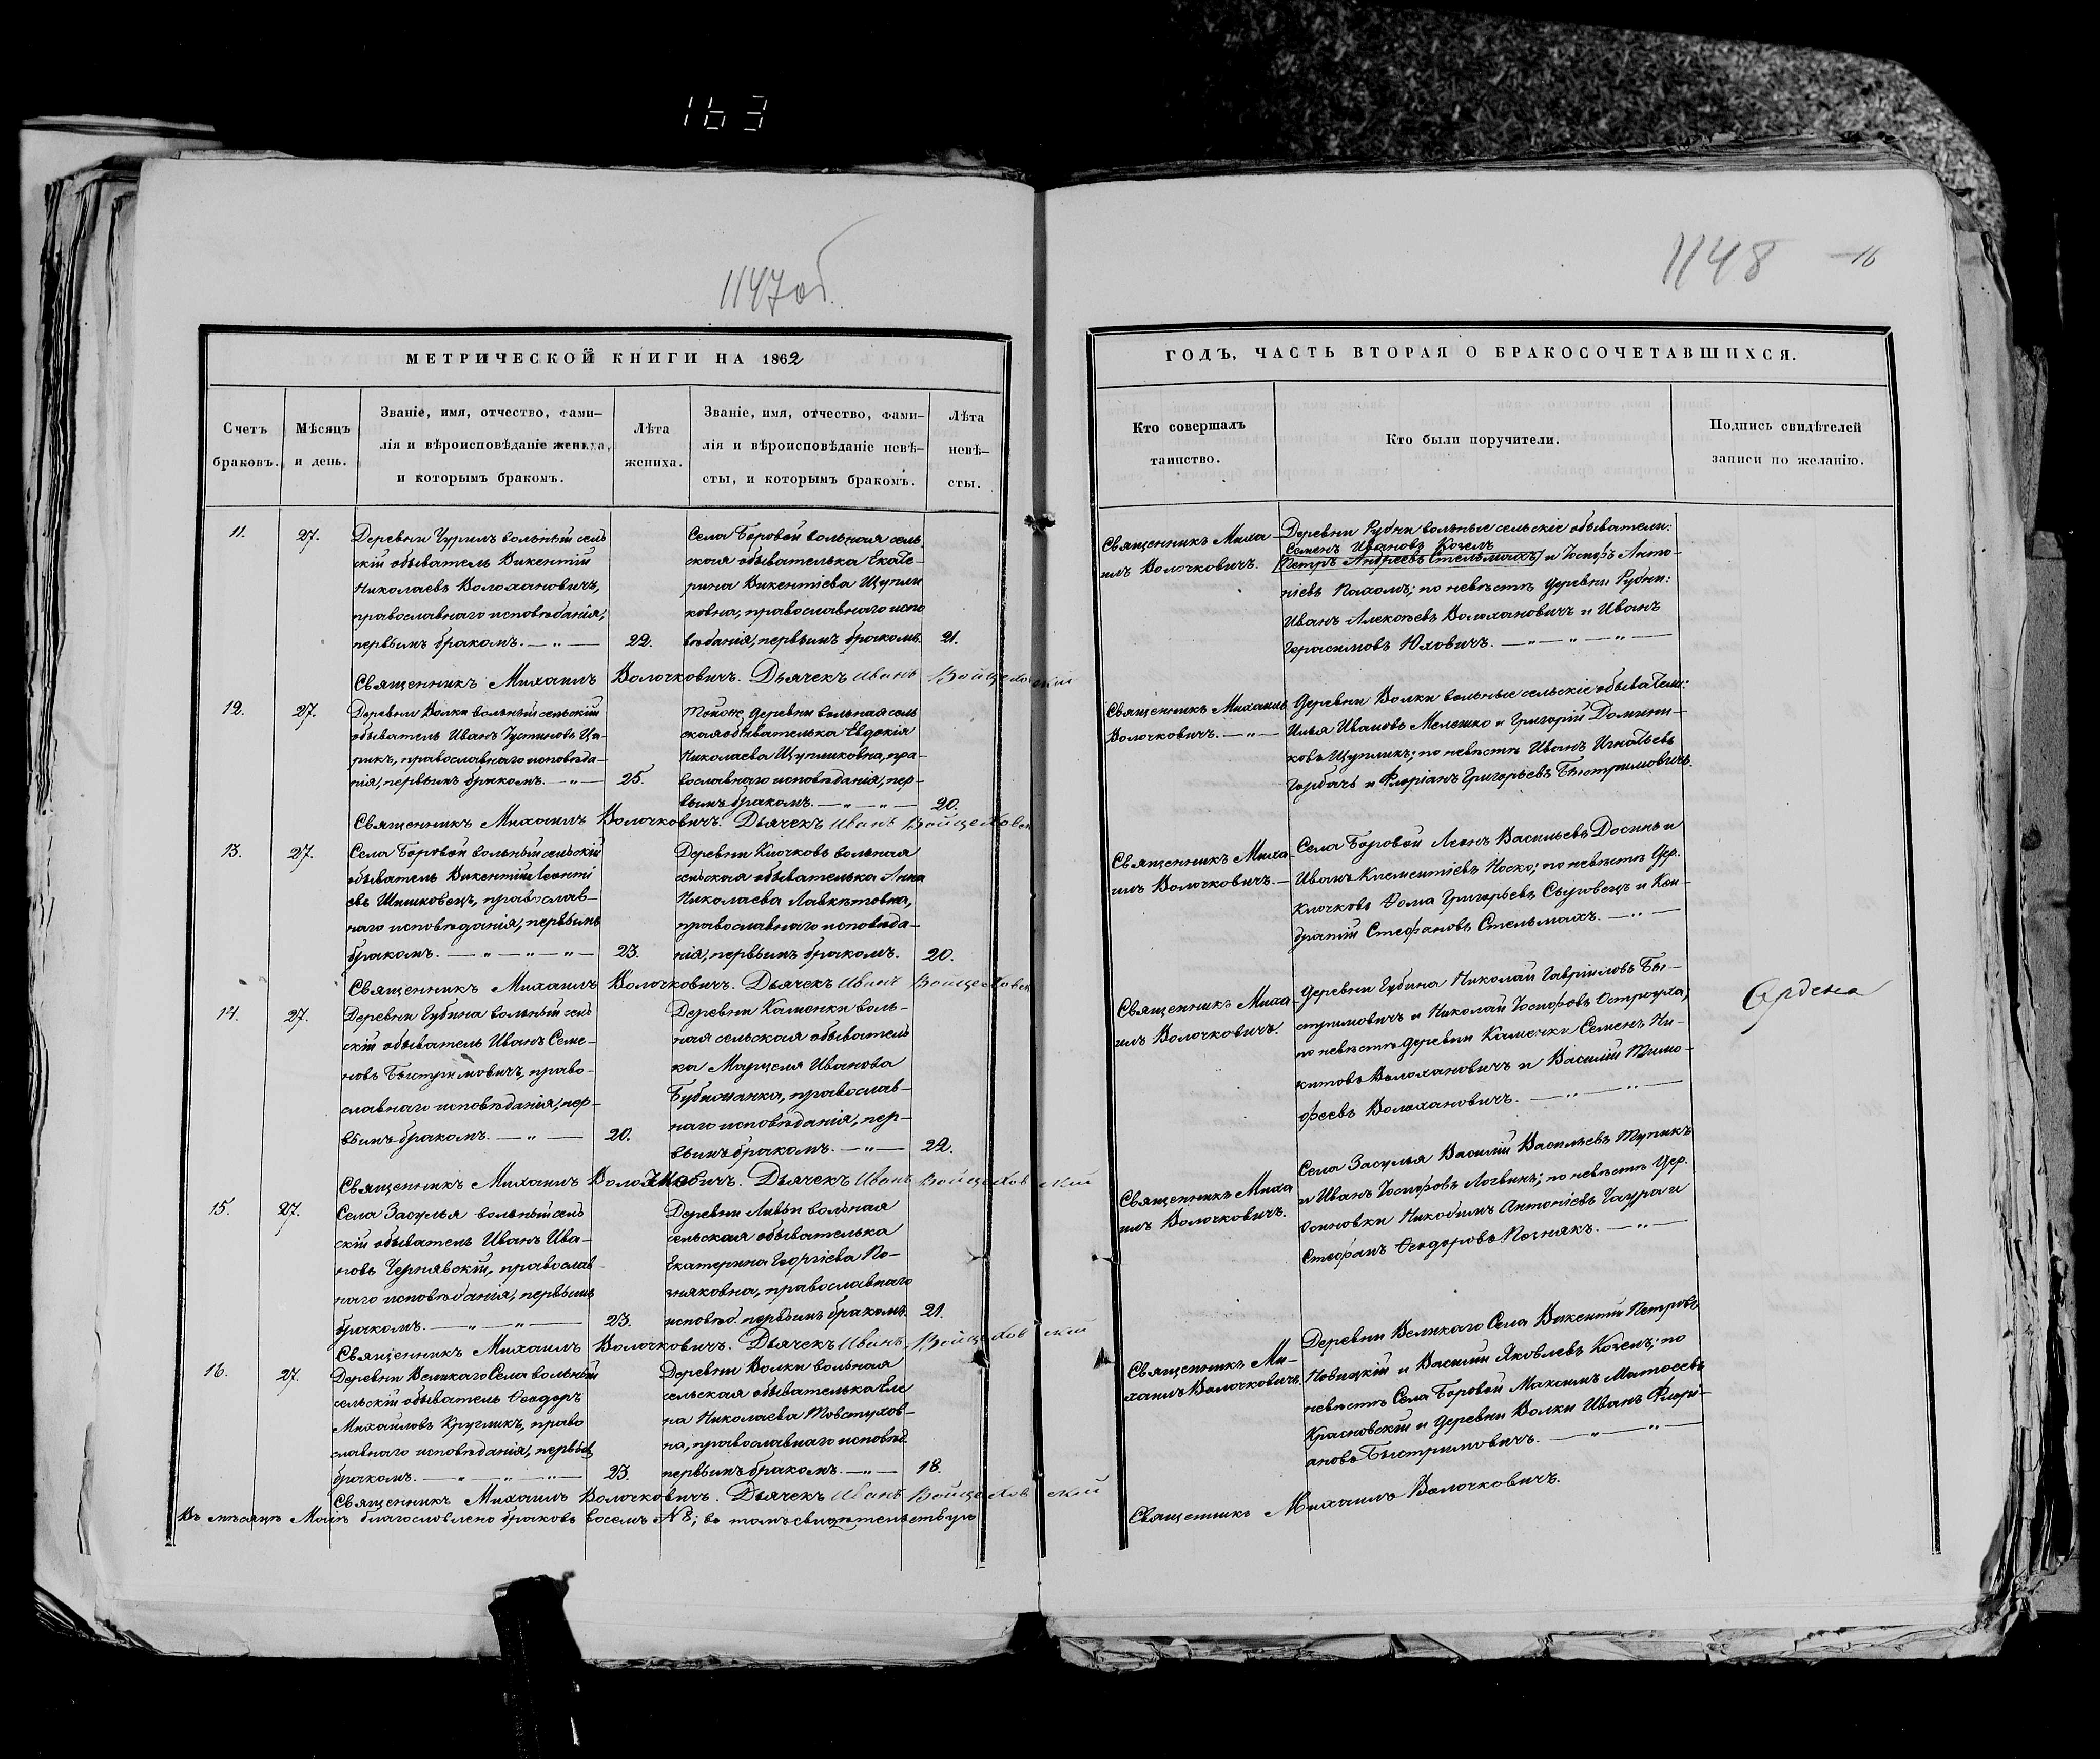 163
1147об.
МЕТРИЧЕСКОЙ КНИГИ НА 1862
Счетъ браковъ.
Мѣсяцъ и день.
Званіе, имя, отчество, фами-
лія и вѣроисповѣданіе жениха,
и которымъ бракомъ.
Лѣта жениха.
Званіе, имя, отчество, фами-
лія и вѣроисповѣданіе невѣ-
сты, и которымъ бракомъ.
Лѣта невѣ-
сты.
11.
27.
Деревни Чурилъ вольный сель
скій обыватель Викентій
Николаевъ Волохановичъ,
православнаго исповѣданія,
первымъ бракомъ. — „ —
22.
Села Боровой вольная сель
ская обывателька Екате-
рина Викентіева Щупли
ковна, православнаго испо
вѣданія, первымъ бракомъ.
21.
Священникъ Михаилъ Волочковичъ. Дьячекъ Иванъ Войцеховскій
12.
27.
Деревни Волки вольный сельскій
обыватель Иванъ Іустиновъ Ца-
рикъ, православнаго исповѣда-
нія, первымъ бракомъ. — „ —
25.
Тойже деревни вольная сель
ская обывателька Евдокія
Николаева Щупликовна, пра-
вославнаго исповѣданія, пер-
вымъ бракомъ. — „ — „ —
20.
Священникъ Михаилъ Волочковичъ. Дьячекъ Иванъ Войцеховск
13.
27.
Села Боровой вольный сельскій
обыватель Викентій Леонті
евъ Шишковецъ, православ-
наго исповѣданія, первымъ
бракомъ. — „ — „ — „ —
23.
Деревни Клочковъ вольная
сельская обывателька Анна
Николаева Лавкѣтовна,
православнаго исповѣда-
нія, первымъ бракомъ.
20.
Священникъ Михаилъ Волочковичъ. Дьячекъ Иванъ Войцеховск
14.
27.
Деревни Губина вольный сель
скій обыватель Иванъ Семе-
новъ Быстримовичъ, право-
славнаго исповѣданія, пер-
вымъ бракомъ. — „ —
20.
Деревни Каменки воль-
ная сельская обыватель
ка Марцеля Иванова
православ-
наго исповѣданія, пер-
вымъ бракомъ. — „ —
22.
Священникъ Михаилъ Волочковичъ. Дьячекъ Иванъ Войцеховскій
15.
27.
Села Засулья вольный сель
скій обыватель Иванъ Ива-
новъ Чернявскій, православ-
наго исповѣданія, первымъ
бракомъ. — „ — „ —
23.
Деревни вольная
сельская обывателька
Екатерина Георгіева По-
зняковна, православнаго
исповѣд. первымъ бракомъ.
21.
Священникъ Михаилъ Волочковичъ. Дьячекъ Иванъ Войцеховскій
16.
27.
Деревни Великаго Села вольный
сельскій обыватель Ѳеодоръ
Михайловъ Кругликъ, право
славнаго исповѣданія, первымъ
бракомъ. — „ — „ — „ —
23.
Деревни Волки вольная
сельская обывателька Еле
на Николаева Товстухов-
на, православнаго исповѣд.
первымъ бракомъ. — „ —
18.
Священникъ Михаилъ Волочковичъ. Дьячекъ Иванъ Войцеховскій
Въ мѣсяцѣ Маіѣ благословлено браковъ восемь № 8; въ томъ свидѣтельствую
1148
16
ГОДЪ, ЧАСТЬ ВТОРАЯ О БРАКОСОЧЕТАВШИХСЯ.
Кто совершалъ таинство.
Кто были поручители.
Подпись свидѣтелей
записи по желанію.
Священникъ Миха-
илъ Волочковичъ.
Деревни Рудни вольные сельскіе обыватели:
Семенъ Ивановъ Козелъ
Петръ Андреевъ Стельмахъ, и Іосифъ Анто-
ніевъ Пахомъ; по невѣстѣ деревни Рудни:
Иванъ Алексѣевъ Волохановичъ и Иванъ
Герасимовъ Юховичъ. — „ — „ — „ —
Священникъ Михаилъ
Волочковичъ. — „ —
Деревни Волки вольные сельскіе обыватели:
Илья Ивановъ Мелешко и Григорій Домини-
ковъ Щупликъ; по невѣстѣ Иванъ Игнатьевъ
Горбачъ и Флоріанъ Григорьевъ Быстримовичъ.
Священникъ Миха-
илъ Волочковичъ. —
Села Боровой Леонъ Васильевъ Досинъ и
Иванъ Климентіевъ Носко; по невѣстѣ дер.
Клочковъ Ѳома Григорьевъ Сыровецъ и Кон-
дратій Стефановъ Стельмахъ. — „ —
Священникъ Миха-
илъ Волочковичъ.
Деревни Губина Николай Гавріиловъ Бы-
стримовичъ и Николай Іосифовъ Остроуха;
по невѣстѣ деревни Каменки Семенъ Ни-
китовъ Волохановичъ и Василій Тимо-
феевъ Волохановичъ. — „ — „ —
Священникъ Миха
илъ Волочковичъ.
Села Засулья Василій Васильевъ Тупикъ
и Иванъ Іосифовъ Логвинъ; по невѣстѣ дер.
Осиновки Никодимъ Антоніевъ Гаура и
Стефанъ Ѳеодоровъ Познякъ. — „ —
Священникъ Ми-
хаилъ Волочковичъ.
Деревни Великаго Села Викентій Петровъ
Новицкій и Василій Яковлевъ Козелъ; по
невѣстѣ Села Боровой Максимъ Матѳеевъ
Красновскій и деревни Волки Иванъ Флорі-
ановъ Быстримовичъ. — „ — „ —
Священникъ Михаилъ Волочковичъ.